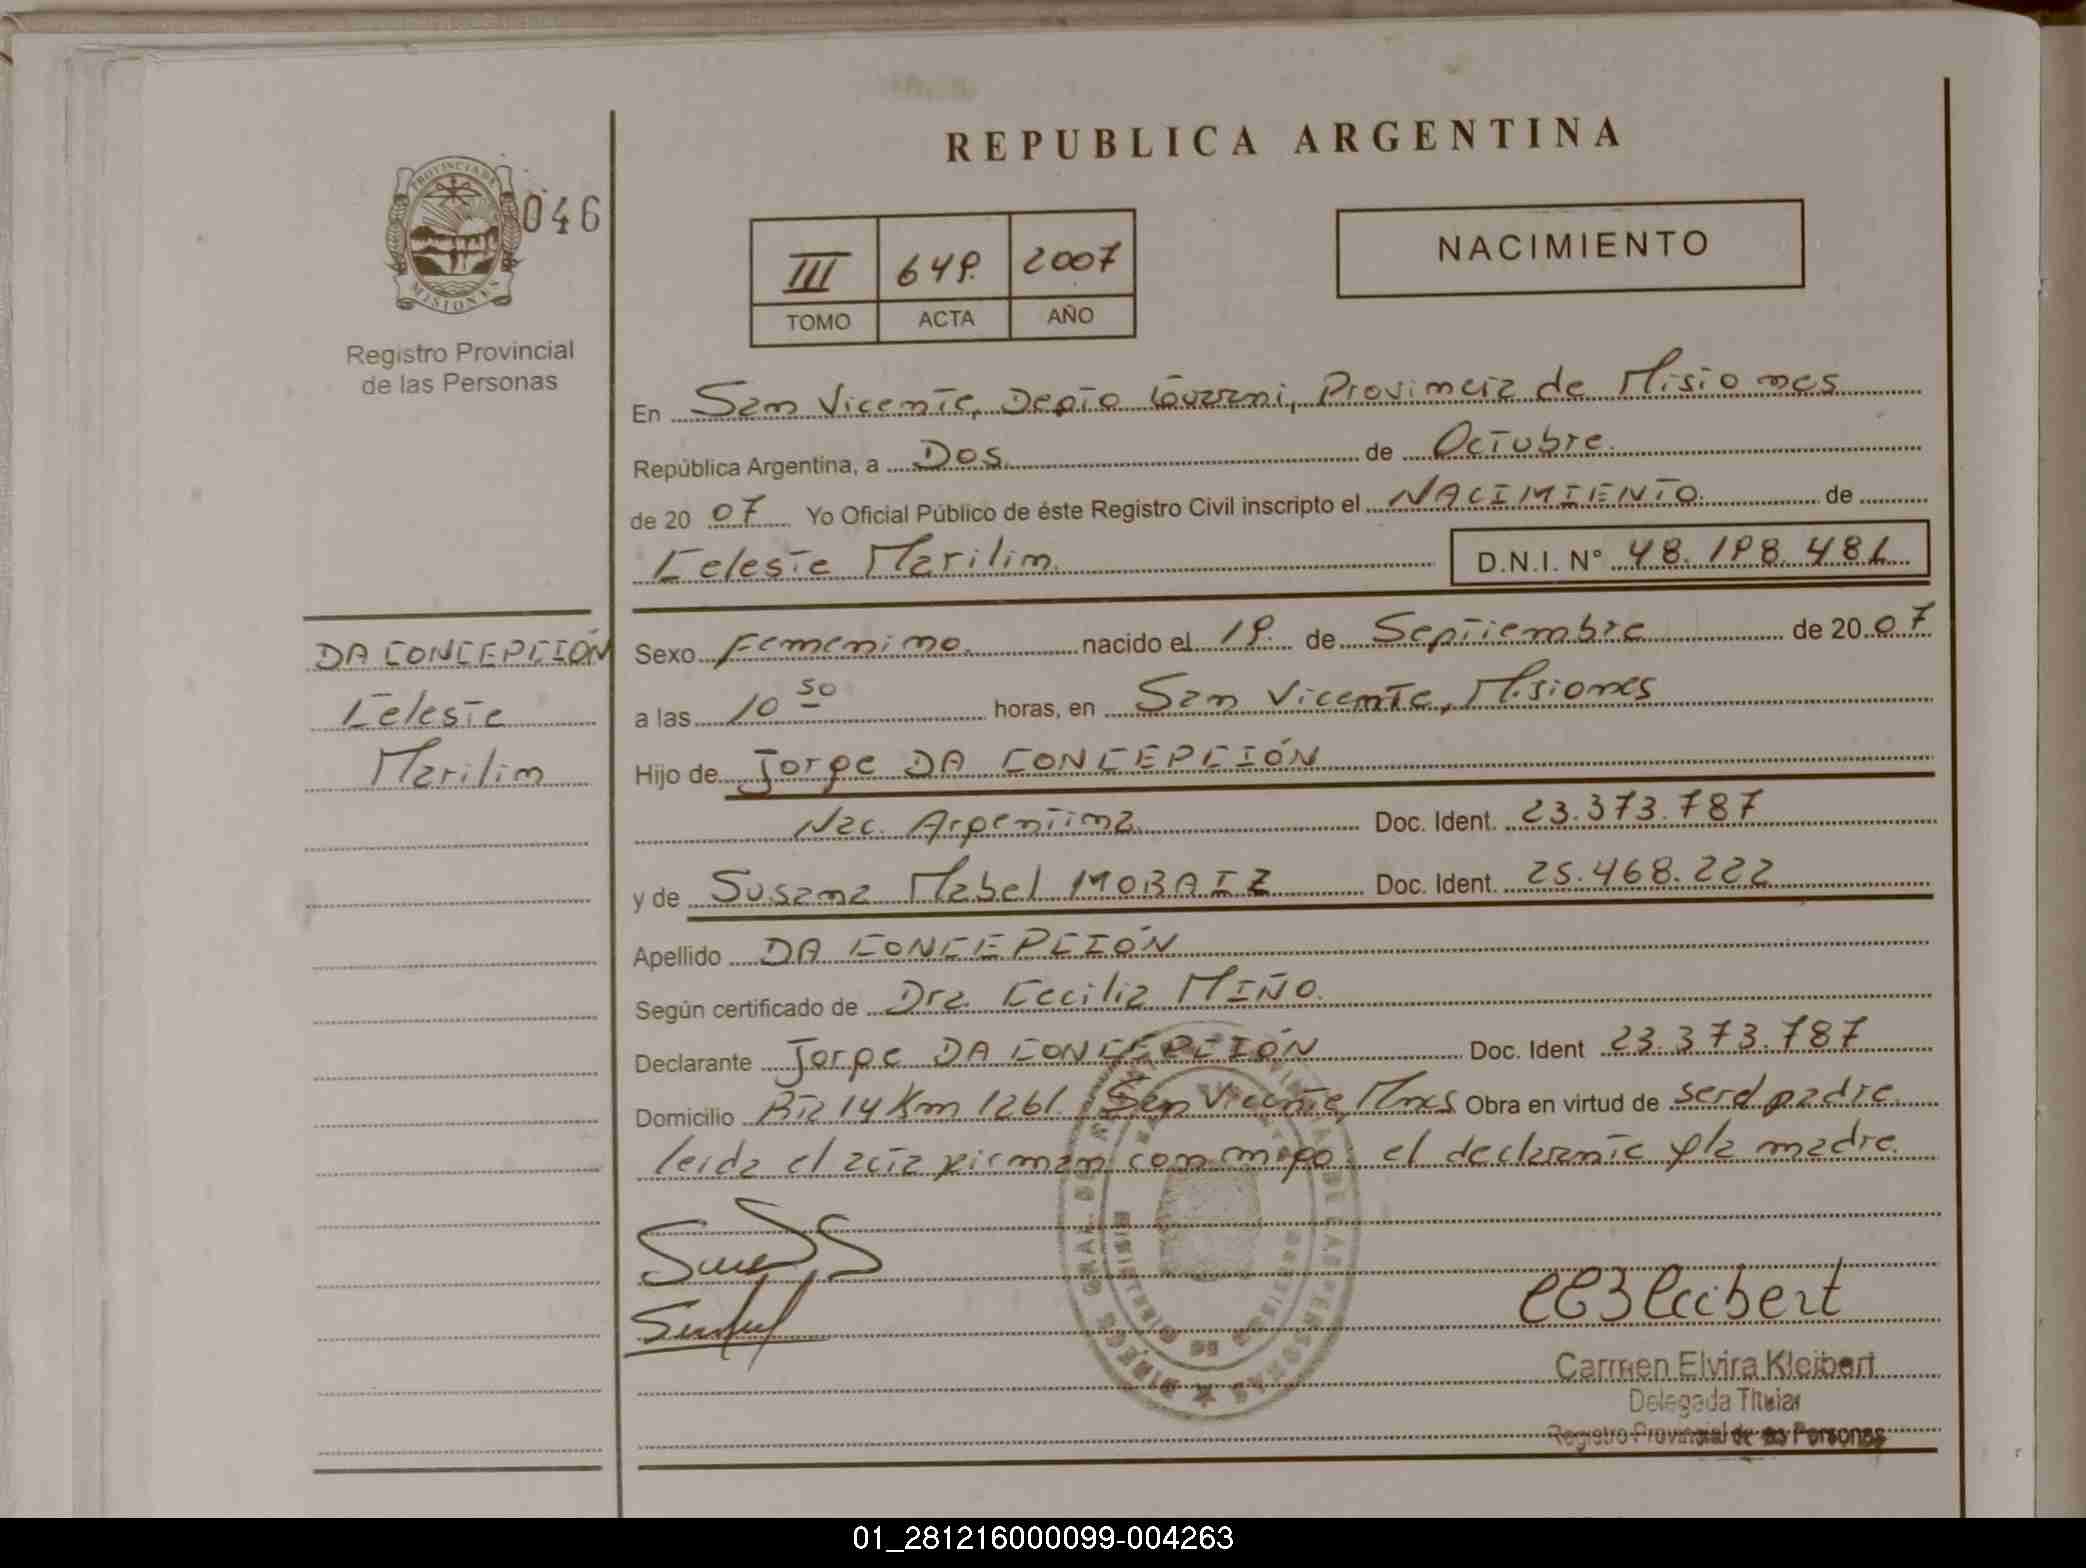 REPUBLICA ARGENTINA
PROVINCIA DE MISIONES
046
Registro Provincial
de las Personas
III 649. 2007
TOMO ACTA AÑO
NACIMIENTO
En San Vicente, Depto Guarani, Provincia de Misiones
República Argentina, a Dos de Octubre
de 2007 Yo Oficial Público de éste Registro Civil inscripto el NACIMIENTO de
Celeste Marilin D.N.I. Nº 48.198.481
DA CONCEPCIÓN
Celeste
Marilin
Sexo Femenino nacido el 19. de Septiembre de 2007
a las 10 50 horas, en San Vicente, Misiones
Hijo de Jorge DA CONCEPCIÓN
Nac. Argentina Doc. Ident. 23.373.787
y de Susana Mabel MORAIZ Doc. Ident. 25.468.222
Apellido DA CONCEPCIÓN
Según certificado de Dra. Cecilia MIÑO.
Declarante Jorge DA CONCEPCIÓN Doc. Ident 23.373.787
Domicilio Rta 14 Km 1261. San Vicente, Mnes Obra en virtud de ser el padre
leida el acta firman conmigo: el declarante y la madre.
Carmen Elvira Kleibert
Delegada Titular
Registro Provincial de las Personas
01_281216000099-004263